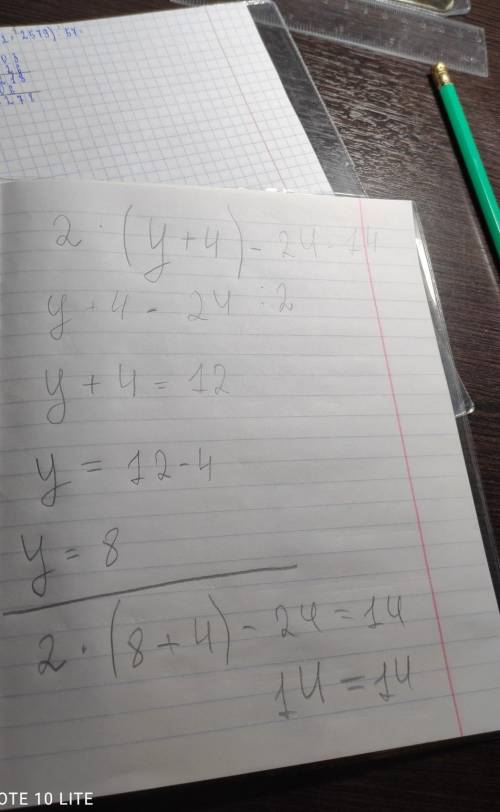 2 · (y + 4) - 24 = 14
y + 4 = 24 : 2
y + 4 = 12
y = 12 - 4
y = 8
2 · (8 + 4) - 24 = 14
14 = 14
OTE 10 LITE